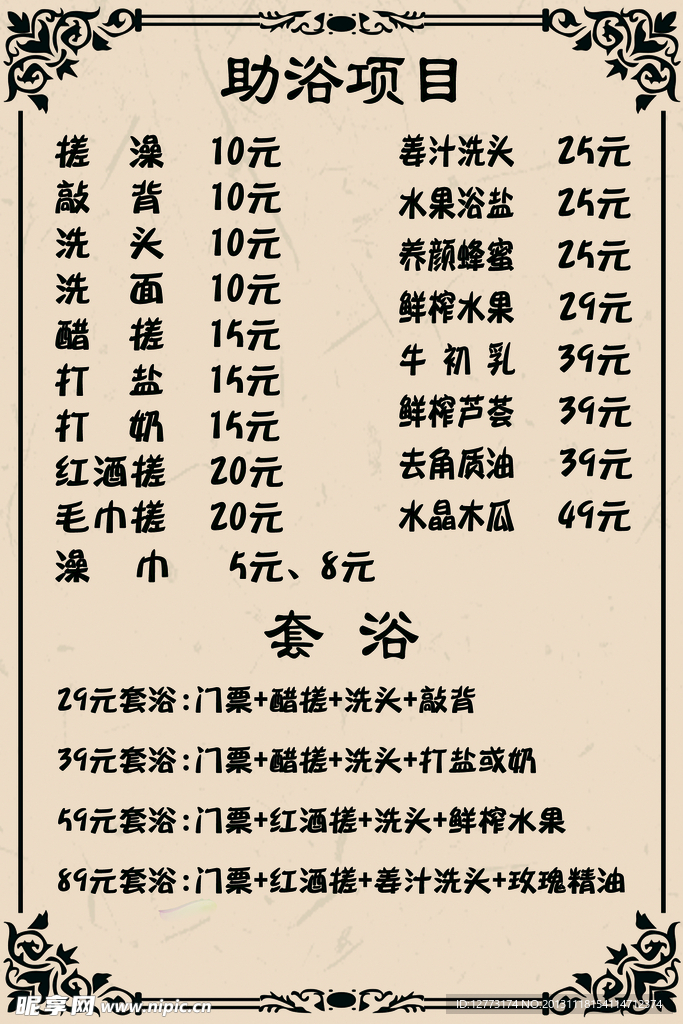 助浴项目
搓 澡 10元
敲 背 10元
洗 头 10元
洗 面 10元
醋 搓 15元
打 盐 15元
打 奶 15元
红酒搓 20元
毛巾搓 20元
澡 巾 5元、8元
姜汁洗头 25元
水果浴盐 25元
养颜蜂蜜 25元
鲜榨水果 29元
牛 初 乳 39元
鲜榨芦荟 39元
去角质油 39元
水晶木瓜 49元
套 浴
29元套浴:门票+醋搓+洗头+敲背
39元套浴:门票+醋搓+洗头+打盐或奶
59元套浴:门票+红酒搓+洗头+鲜榨水果
89元套浴:门票+红酒搓+姜汁洗头+玫瑰精油
昵享网 www.nipic.cn
ID:12773174 NO:20131118154114719374